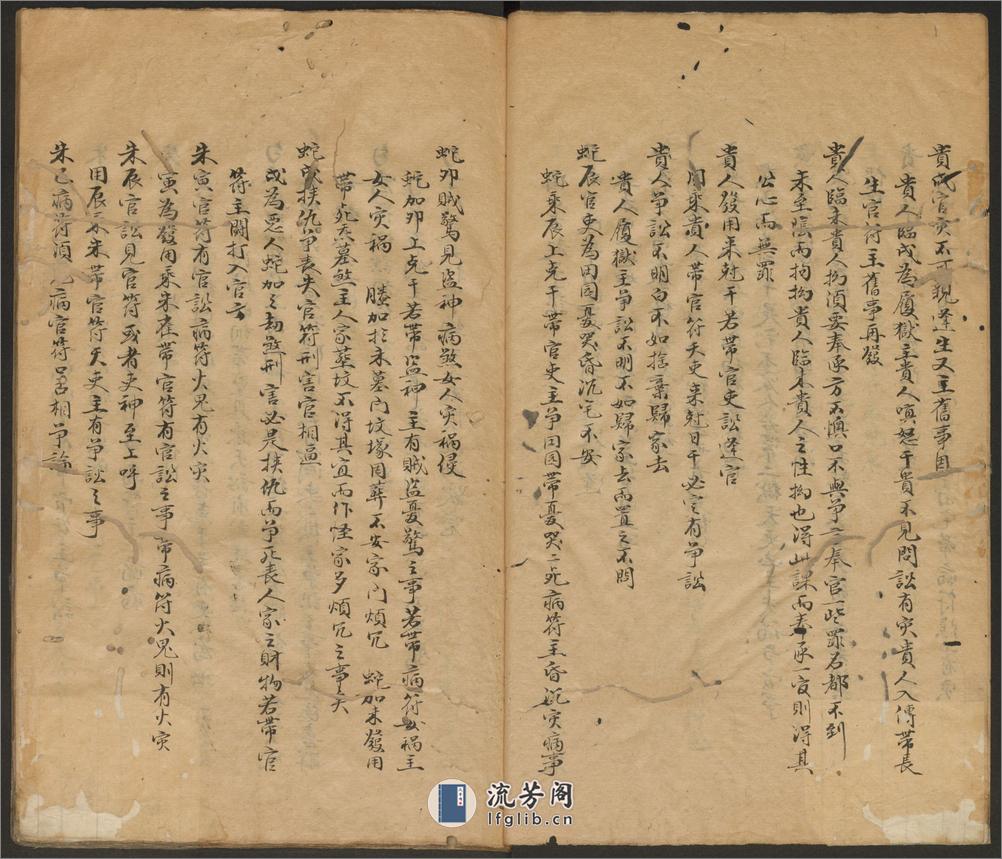 貴戌官災不可親逢生又主舊事因
貴人臨戌為履獄主貴人嗔怒干貴不見問訟有災貴人入傳帶長
生官符主舊事再發
貴人臨未貴人拗須要奉承方不惧口不與爭二奉官一些罪名都不到
未至陰而拘拗貴人臨未貴人之性拗也得此課而奉承一度則得其
公心而無罪
貴人發用來尅干若帶官吏訟逢官
用乘貴人帶官符天吏來尅日干必定有爭訟
貴人爭訟不明白不如捨棄歸家去
貴人履獄主爭訟不明不如歸家去而置之不問
蛇辰官吏為田園憂哭昏沉宅不安
蛇乘辰上克干帶官吏主爭田園帶憂哭二死病符主昏沉災病事
蛇卯賊驚見盜神病煞女人災禍侵
蛇加卯上克干若帶盜神主有賊盜憂驚之事若帶病符女禍主
女人災禍 螣加於未墓門墳塚因葬不安家門煩冗 蛇加未發用
帶死炁墓煞主人家葬墳不得其宜而作怪家多煩冗之事天
蛇戌挾仇爭喪失官符刑害官相逼
戌為惡人蛇加之劫煞刑害必是挾仇而爭死喪人家之財物若帶官
符主鬪打入官方
朱寅官符有官訟病符火鬼有火災
寅為發用乘朱雀帶官符有官訟之事帶病符火鬼則有火災
朱辰官訟見官符或者吏神至上呼
用辰乘朱帶官符天吏主有爭訟之事
朱巳病符須 病官符口舌相爭論